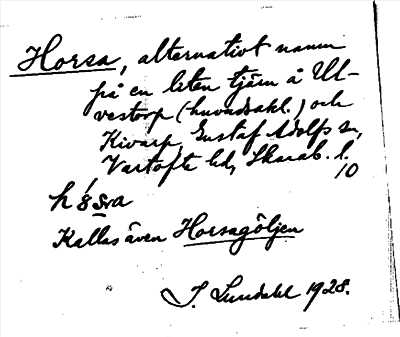 Horsa, alternativt namn
på en liten tjärn å Ul-
vestorp (huvudsakl.) och
Kivarp, Gustaf Adolfs sn,
Vartofta hd, Skarab. l.
10
Kallas även Horsagöljen
J. Lundahl 1928.